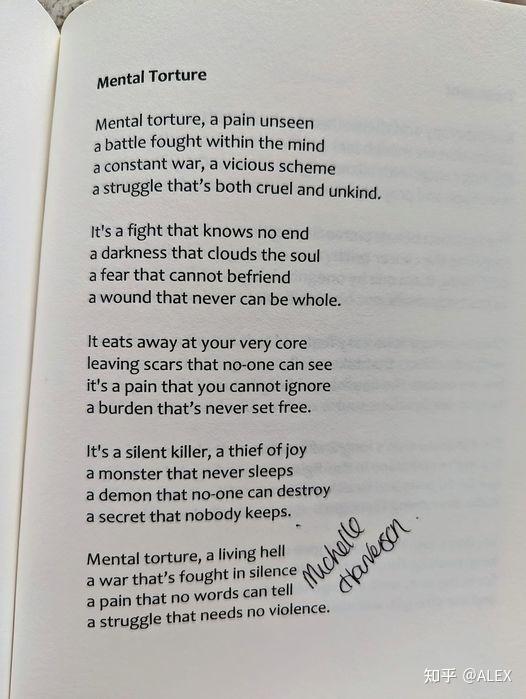 Mental Torture
Mental torture, a pain unseen
a battle fought within the mind
a constant war, a vicious scheme
a struggle that's both cruel and unkind.
It's a fight that knows no end
a darkness that clouds the soul
a fear that cannot befriend
a wound that never can be whole.
It eats away at your very core
leaving scars that no-one can see
it's a pain that you cannot ignore
a burden that's never set free.
It's a silent killer, a thief of joy
a monster that never sleeps
a demon that no-one can destroy
a secret that nobody keeps.
Mental torture, a living hell
a war that's fought in silence
a pain that no words can tell
a struggle that needs no violence.
Michelle
知乎 @ALEX